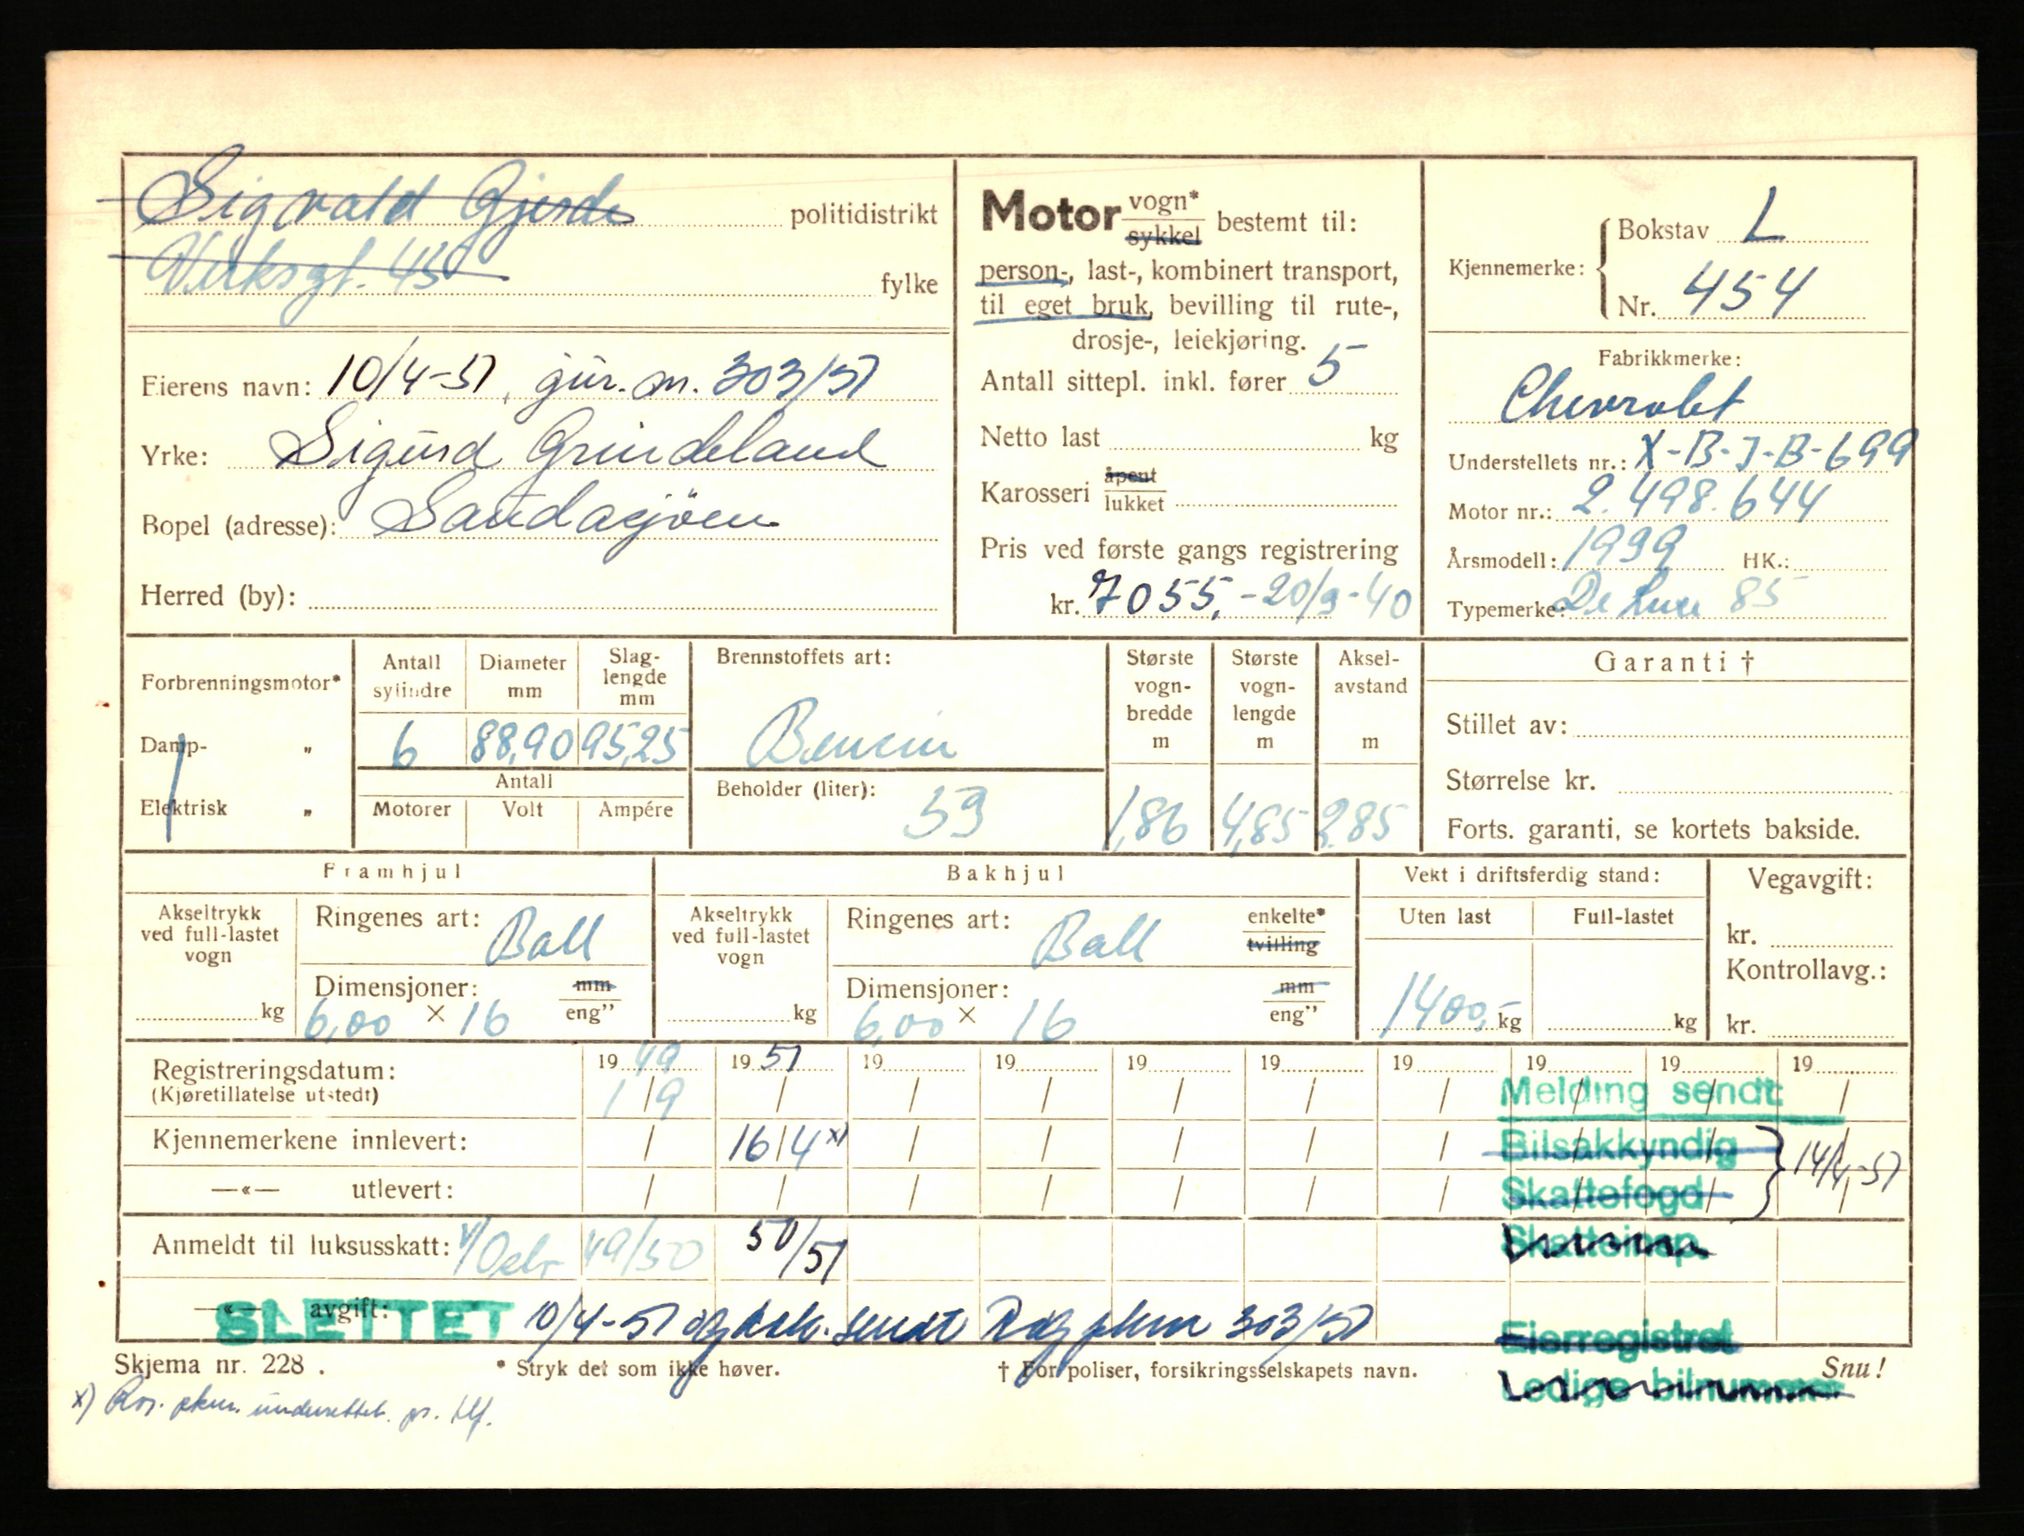 Sigvald Gjerde politidistrikt
Verksgt. 43 fylke
Eierens navn: 10/4-51, jur. m. 303/51
Yrke: Sigurd Grindeland
Bopel (adresse): Saudasjöen
Herred (by):
Motor vogn* sykkel bestemt til:
person-, last-, kombinert transport,
til eget bruk, bevilling til rute-,
drosje-, leiekjøring.
Antall sittepl. inkl. fører 5
Netto last kg
Karosseri åpent lukket
Pris ved første gangs registrering
kr. 7055,- 20/9-40
Kjennemerke: Bokstav L
Nr. 454
Fabrikkmerke:
Chevrolet
Understellets nr.: X-B-J-B-699
Motor nr.: 2.498.644
Årsmodell: 1939 HK.:
Typemerke: De Luxe 85
Forbrenningsmotor*
Damp- „
Elektrisk „
Antall sylindre Diameter mm Slaglengde mm
6 88,90 95,25
Antall
Motorer Volt Ampére
Brennstoffets art:
Bensin
Beholder (liter): 53
Største vognbredde m Største vognlengde m Akselavstand m
1,86 4,85 2.85
Garanti †
Stillet av:
Størrelse kr.
Forts. garanti, se kortets bakside.
Framhjul
Akseltrykk ved full-lastet vogn kg
Ringenes art: Ball
Dimensjoner: mm
6,00 × 16 eng"
Bakhjul
Akseltrykk ved full-lastet vogn kg
Ringenes art: Ball enkelte* tvilling
Dimensjoner: mm
6,00 × 16 eng"
Vekt i driftsferdig stand:
Uten last Full-lastet
1400,- kg kg
Vegavgift:
kr.
Kontrollavg.:
kr.
Registreringsdatum: 19 49 19 51 19 19 19 19 19 19 19 19
(Kjøretillatelse utstedt) 1/9 / / / / / / / / /
Melding sendt
Kjennemerkene innlevert: / 16/4 x) / / / / /
Bilsakkyndig } 14/4-51
—«— utlevert: / / / / / / /
Skattefogd
Anmeldt til luksusskatt: 49/50 50/51
Skatteinsp.
—«— avgift:
SLETTET 10/4-51 og sendt 303/51
Eierregistret
Skjema nr. 228. * Stryk det som ikke høver. † For poliser, forsikringsselskapets navn. Snu!
Ledige bilnummer
x) underrettet pr. tlf.